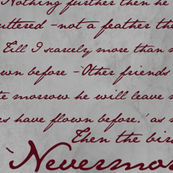 Nothing further then he
uttered - not a feather th
Till I scarcely more than m
own before - Other friends
he morrow he will leave m
es have flown before.' as
Then the bir
'Nevermor